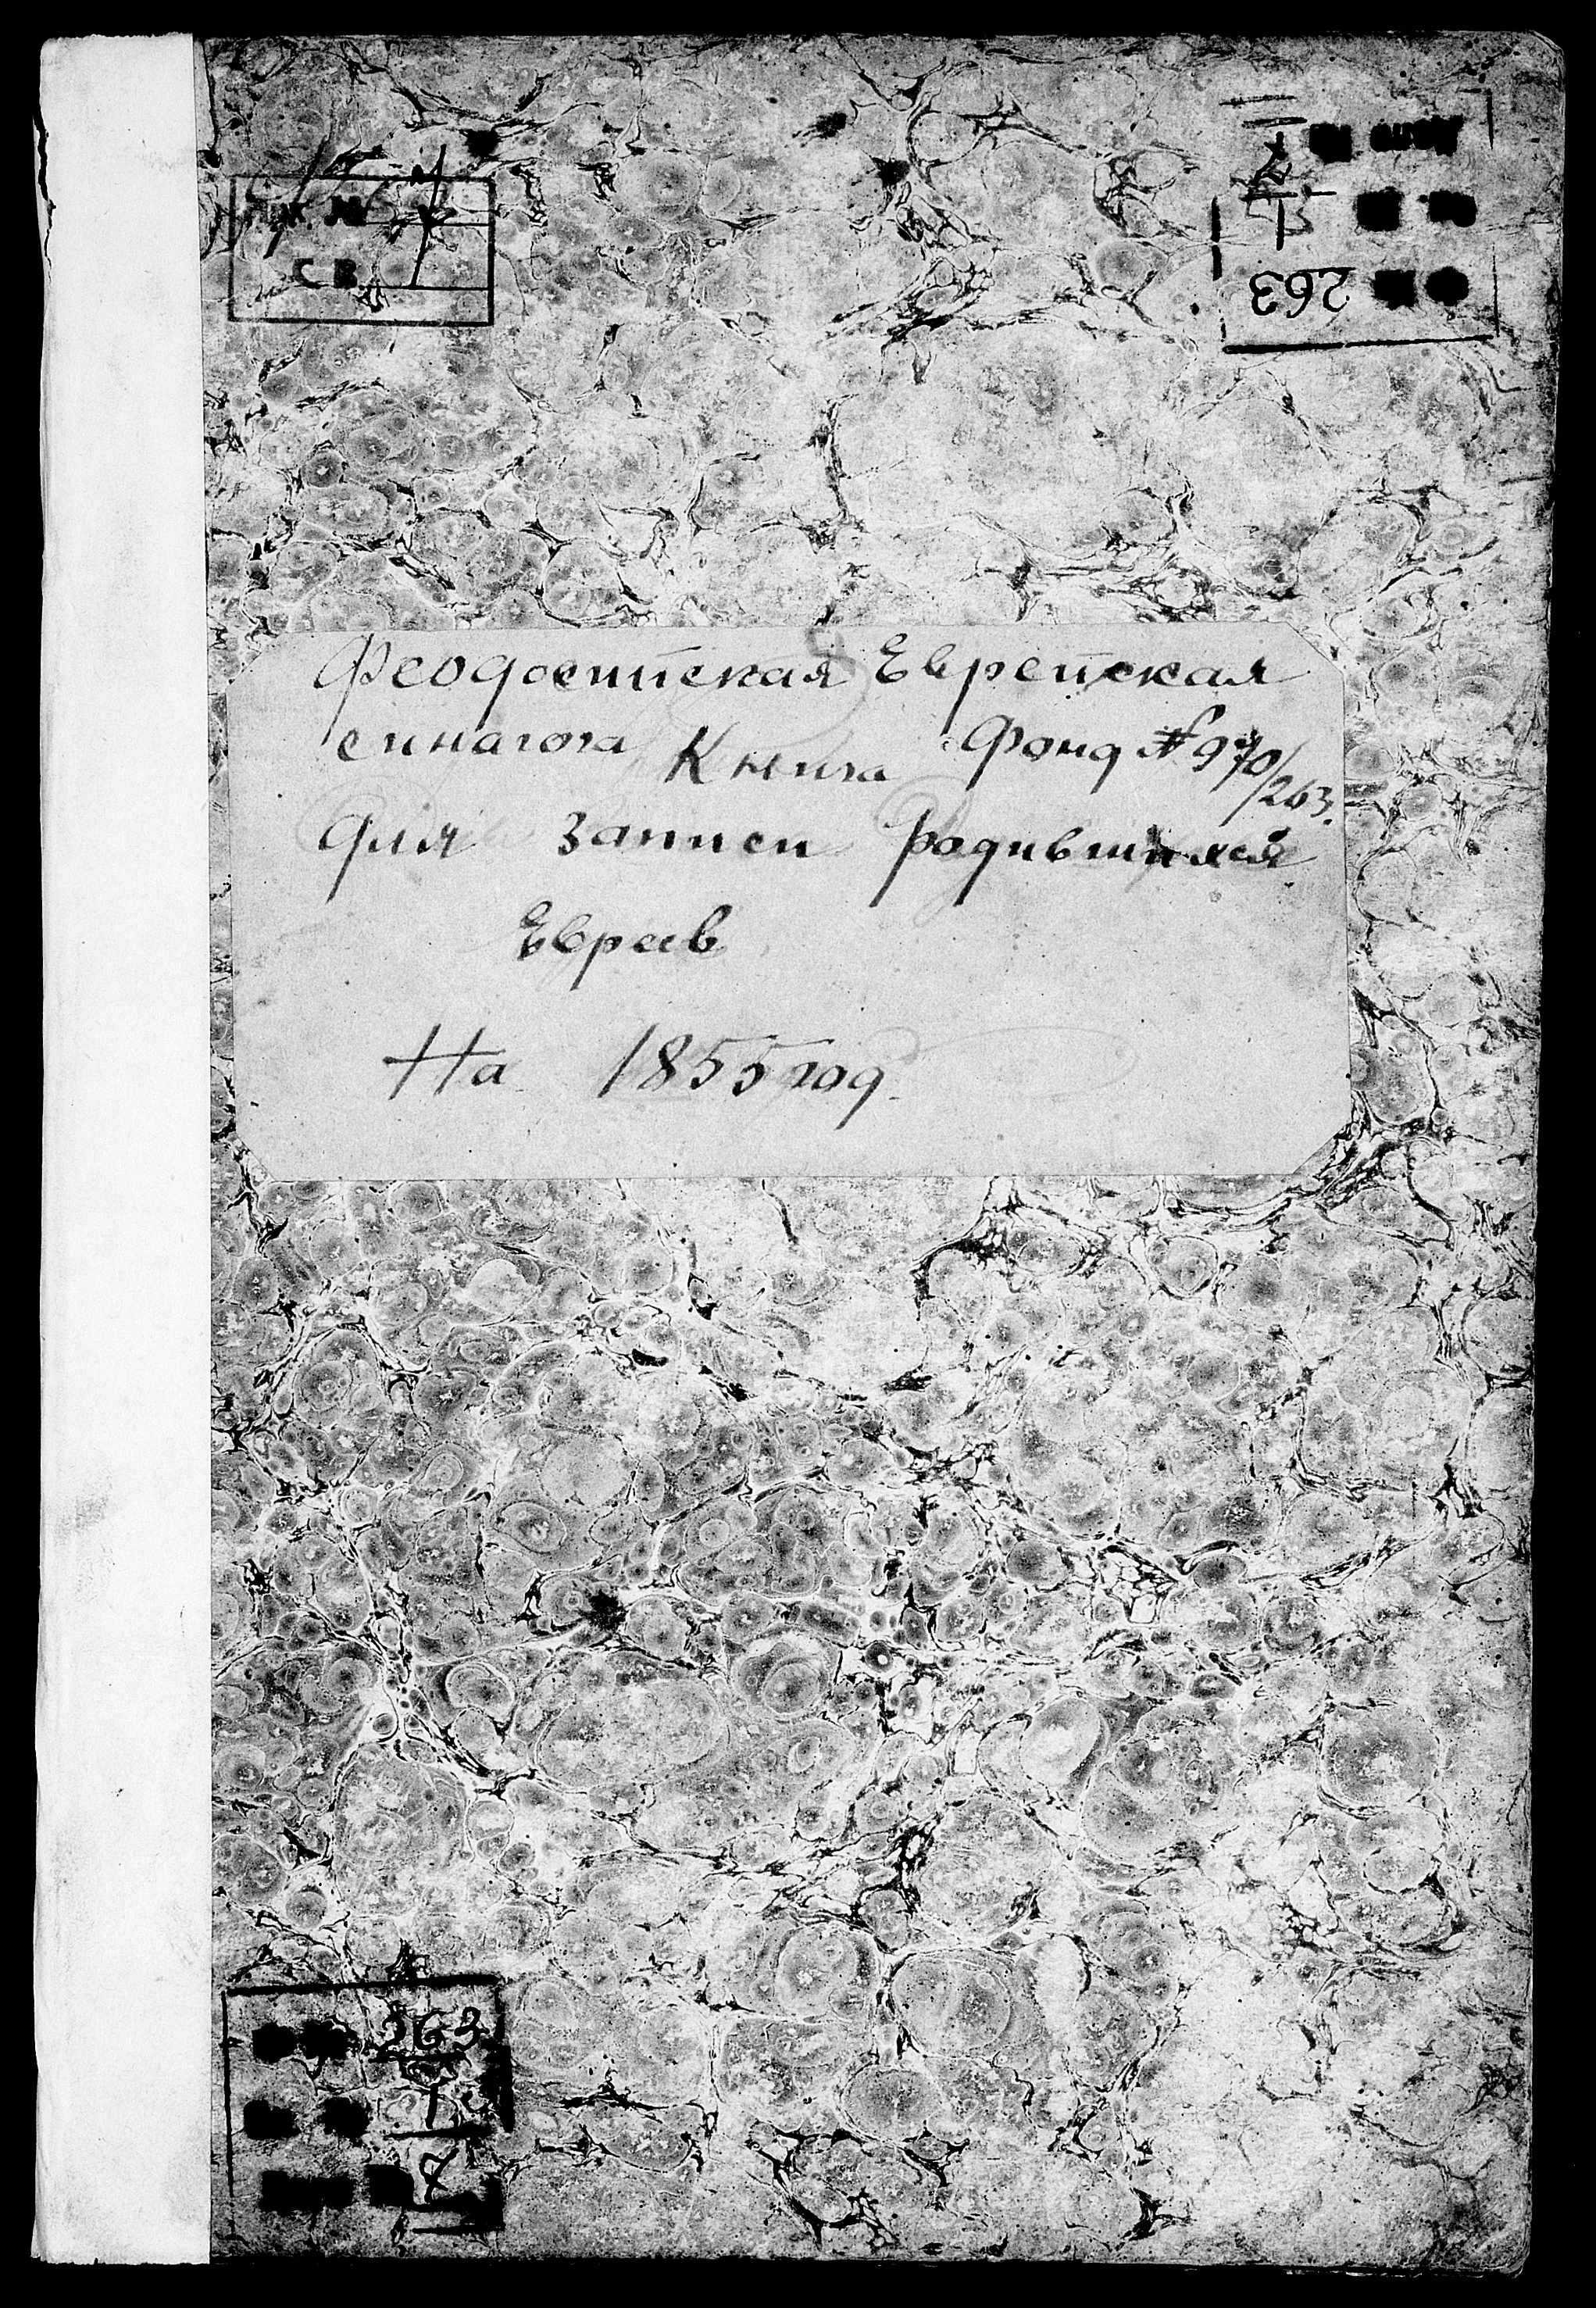 Инв. №
С В.
263
Феодосийская Еврейская
синагога Книга Фонд № 970/263.
для записи родившихся
Евреев
На 1855 год.
263
1
7